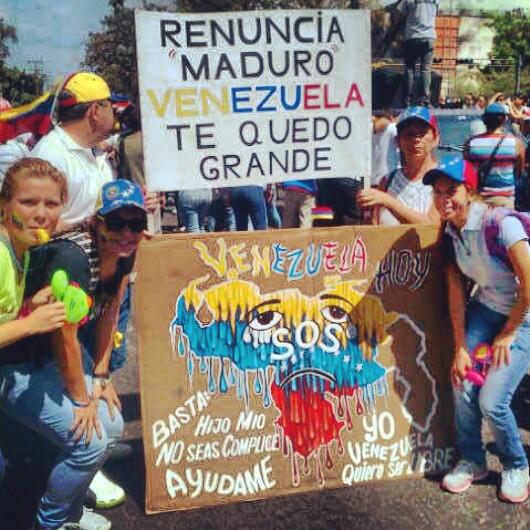 RENUNCIA
"MADURO"
VENEZUELA
TE QUEDO
GRANDE
VENEZUELA
HOY
SOS
BASTA..
HIJO MIO
NO SEAS COMPLICE
AYUDAME
YO
VENEZUELA
Quiero ser LIBRE